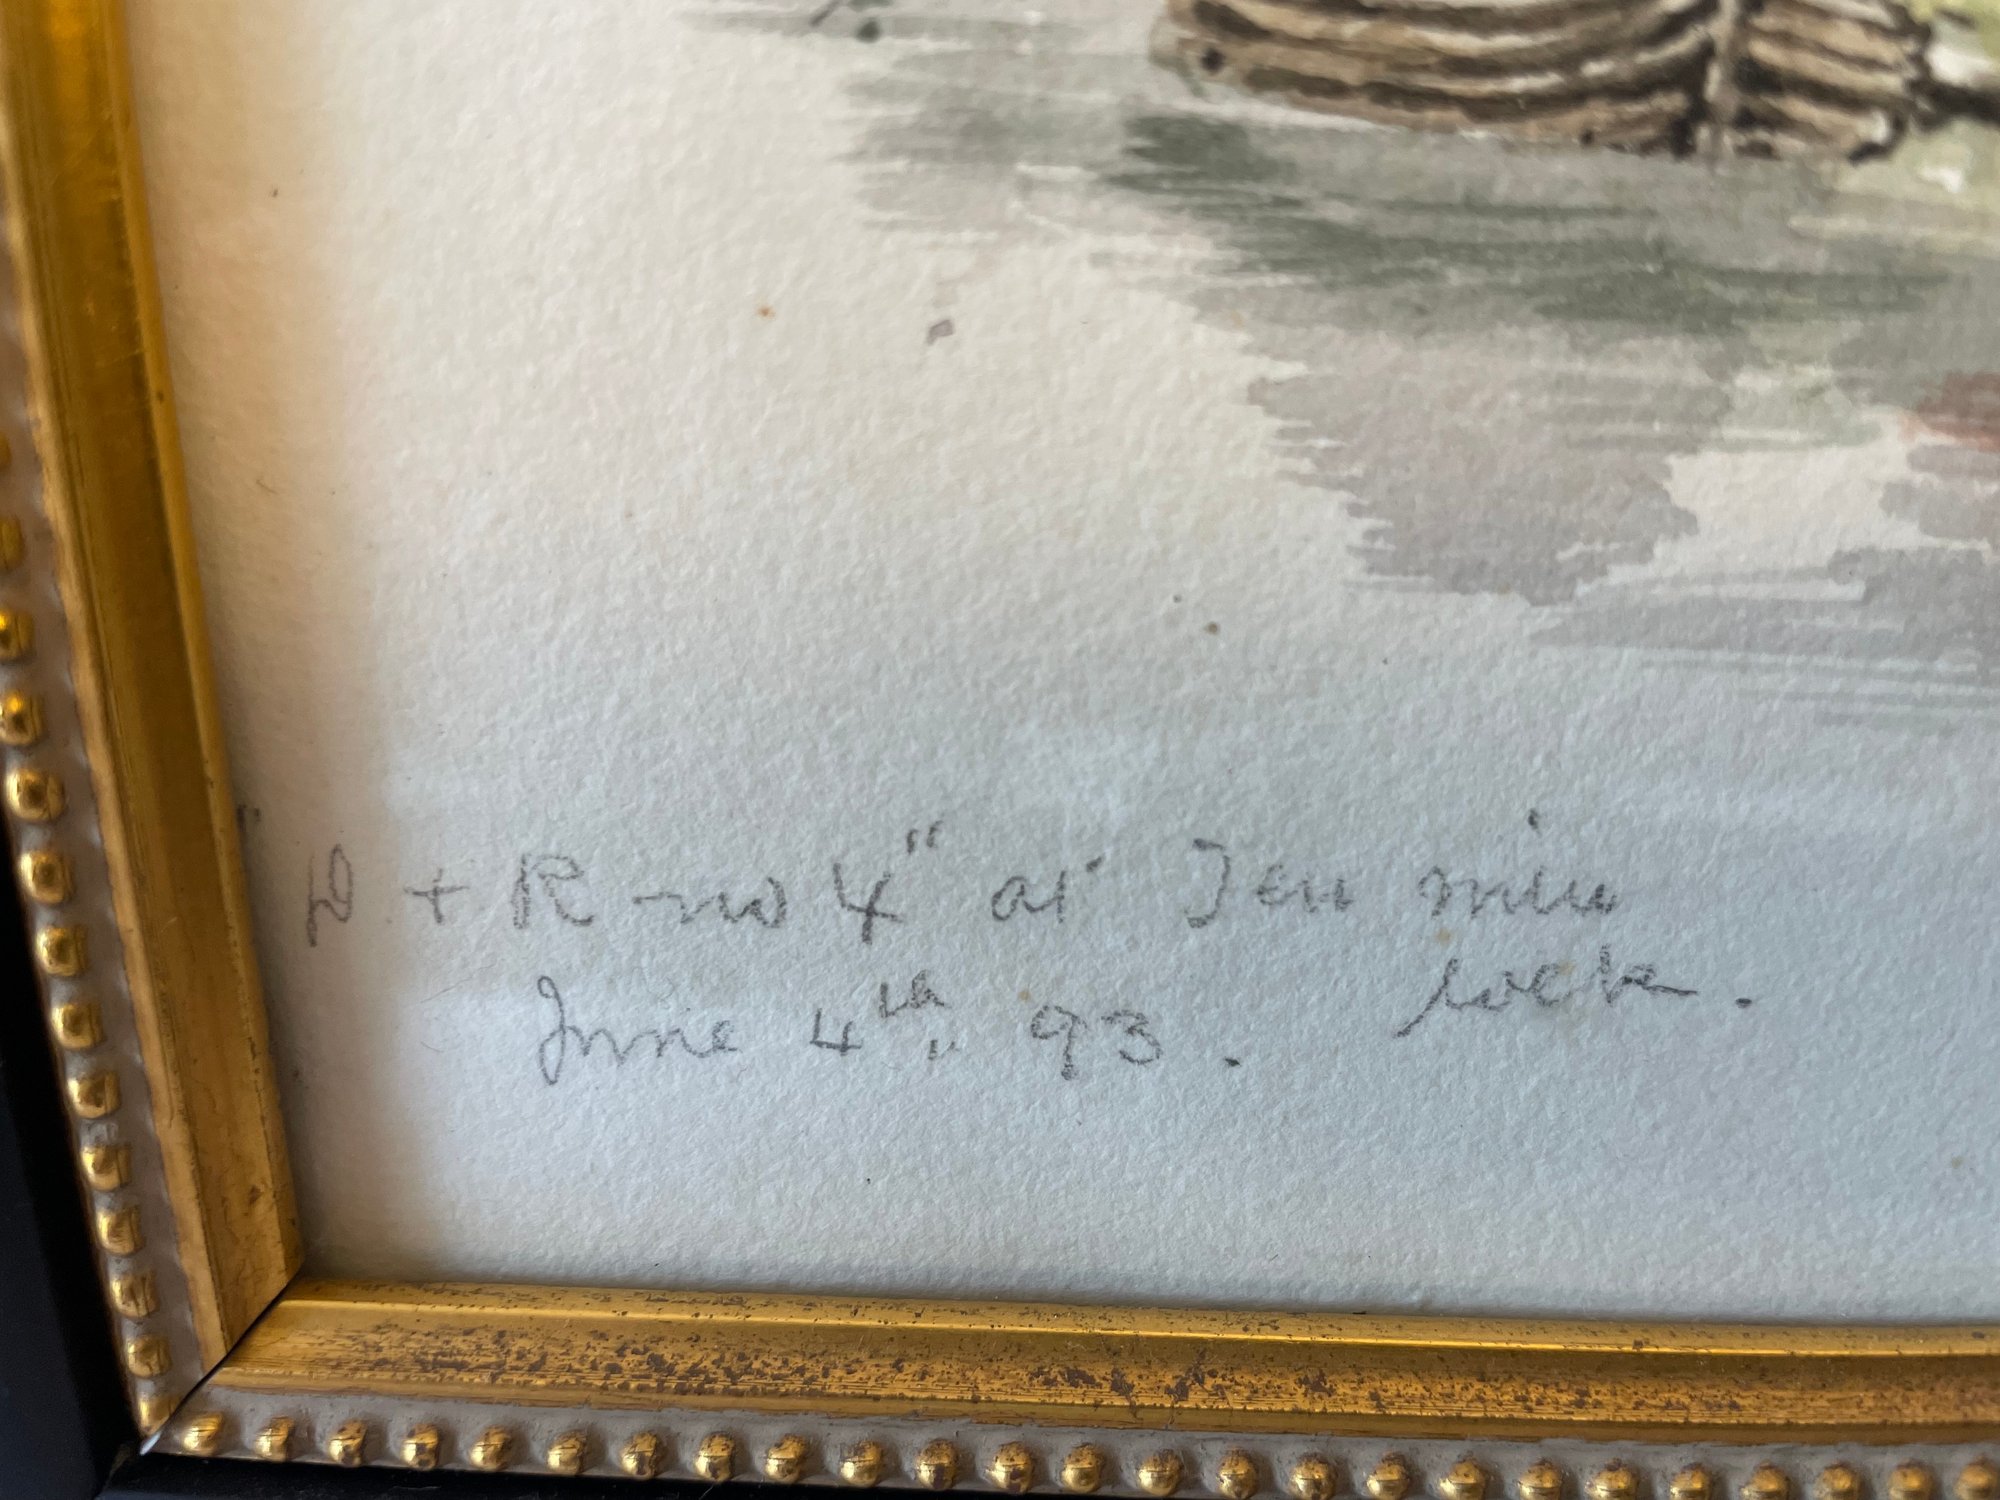 "D + R - no 4" at Ten mile
lock.
June 4th,, 93.